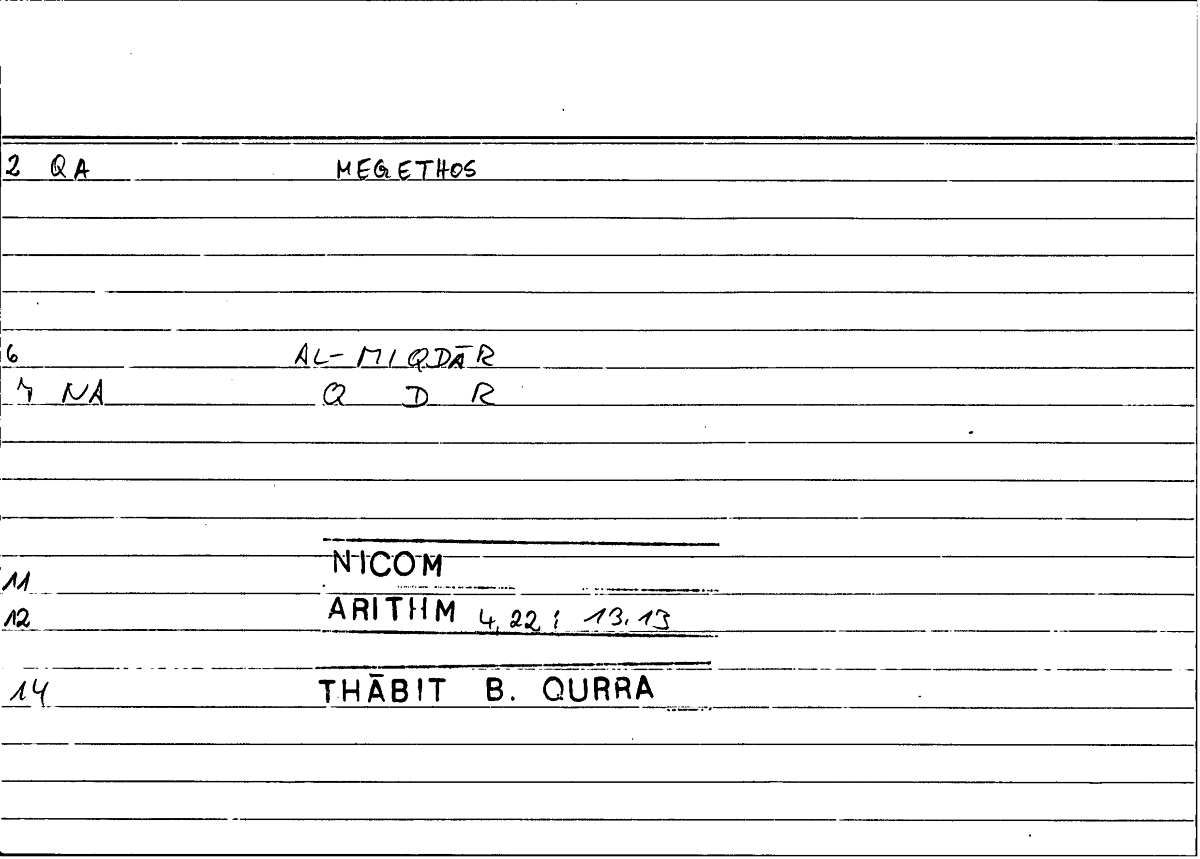 2 QA MEGETHOS
6 AL-MIQDĀR
7 NA Q D R
11 NICOM
12 ARITHM 4,22; 13,13
14 THĀBIT B. QURRA